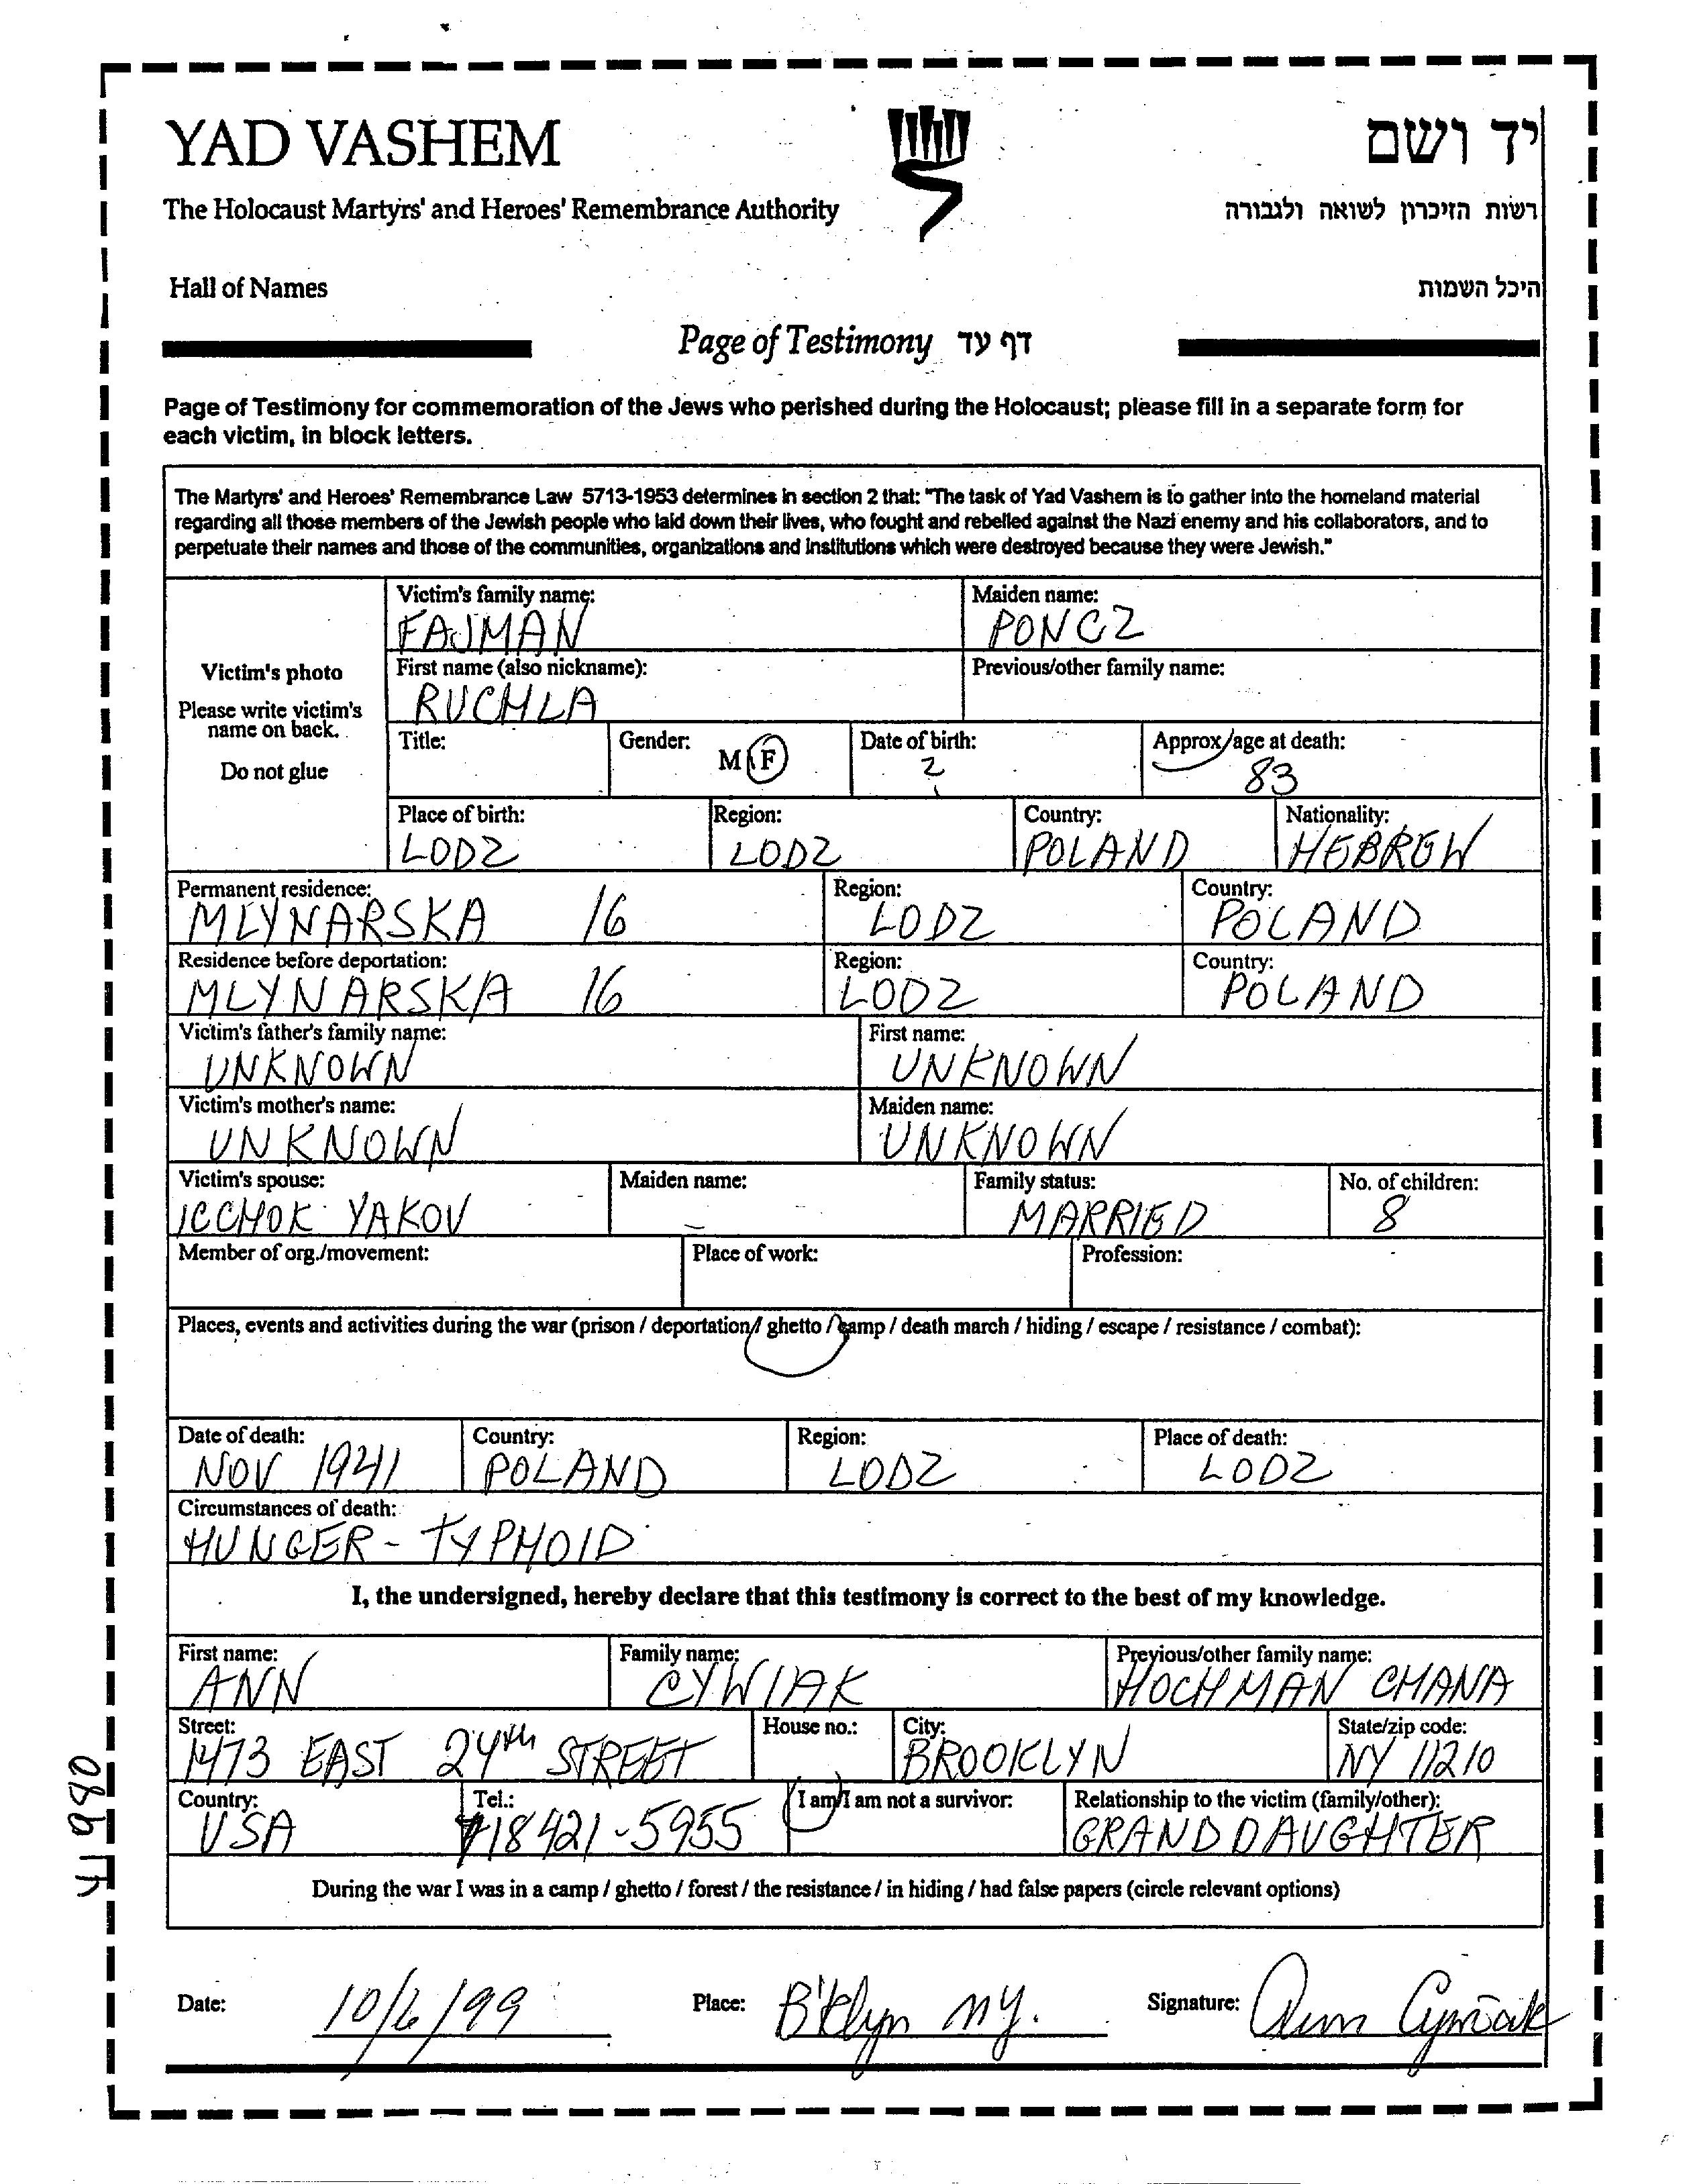 YAD VASHEM
יד ושם
The Holocaust Martyrs' and Heroes' Remembrance Authority
רשות הזיכרון לשואה ולגבורה
Hall of Names
היכל השמות
Page of Testimony דף עד
Page of Testimony for commemoration of the Jews who perished during the Holocaust; please fill in a separate form for
each victim, in block letters.
The Martyrs' and Heroes' Remembrance Law 5713-1953 determines in section 2 that: "The task of Yad Vashem is to gather into the homeland material
regarding all those members of the Jewish people who laid down their lives, who fought and rebelled against the Nazi enemy and his collaborators, and to
perpetuate their names and those of the communities, organizations and institutions which were destroyed because they were Jewish."
Victim's photo
Please write victim's
name on back.
Do not glue
Victim's family name: Maiden name:
FAJMAN PONCZ
First name (also nickname): Previous/other family name:
RUCHLA
Title: Gender: M F Date of birth: Approx/age at death:
? 83
Place of birth: Region: Country: Nationality:
LODZ LODZ POLAND HEBREW
Permanent residence: Region: Country:
MLYNARSKA 16 LODZ POLAND
Residence before deportation: Region: Country:
MLYNARSKA 16 LODZ POLAND
Victim's father's family name: First name:
UNKNOWN UNKNOWN
Victim's mother's name: Maiden name:
UNKNOWN UNKNOWN
Victim's spouse: Maiden name: Family status: No. of children:
ICCHOK YAKOV – MARRIED 8
Member of org./movement: Place of work: Profession:
Places, events and activities during the war (prison / deportation / ghetto / camp / death march / hiding / escape / resistance / combat):
Date of death: Country: Region: Place of death:
NOV 1941 POLAND LODZ LODZ
Circumstances of death:
HUNGER - TYPHOID
I, the undersigned, hereby declare that this testimony is correct to the best of my knowledge.
First name: Family name: Previous/other family name:
ANN CYWIAK HOCHMAN CHANA
Street: House no.: City: State/zip code:
1473 EAST 24th STREET BROOKLYN NY 11210
Country: Tel.: I am/I am not a survivor: Relationship to the victim (family/other):
USA 718 421-5955 GRANDDAUGHTER
During the war I was in a camp / ghetto / forest / the resistance / in hiding / had false papers (circle relevant options)
Date: 10/6/99 Place: B'klyn NY. Signature: Ann Cywiak